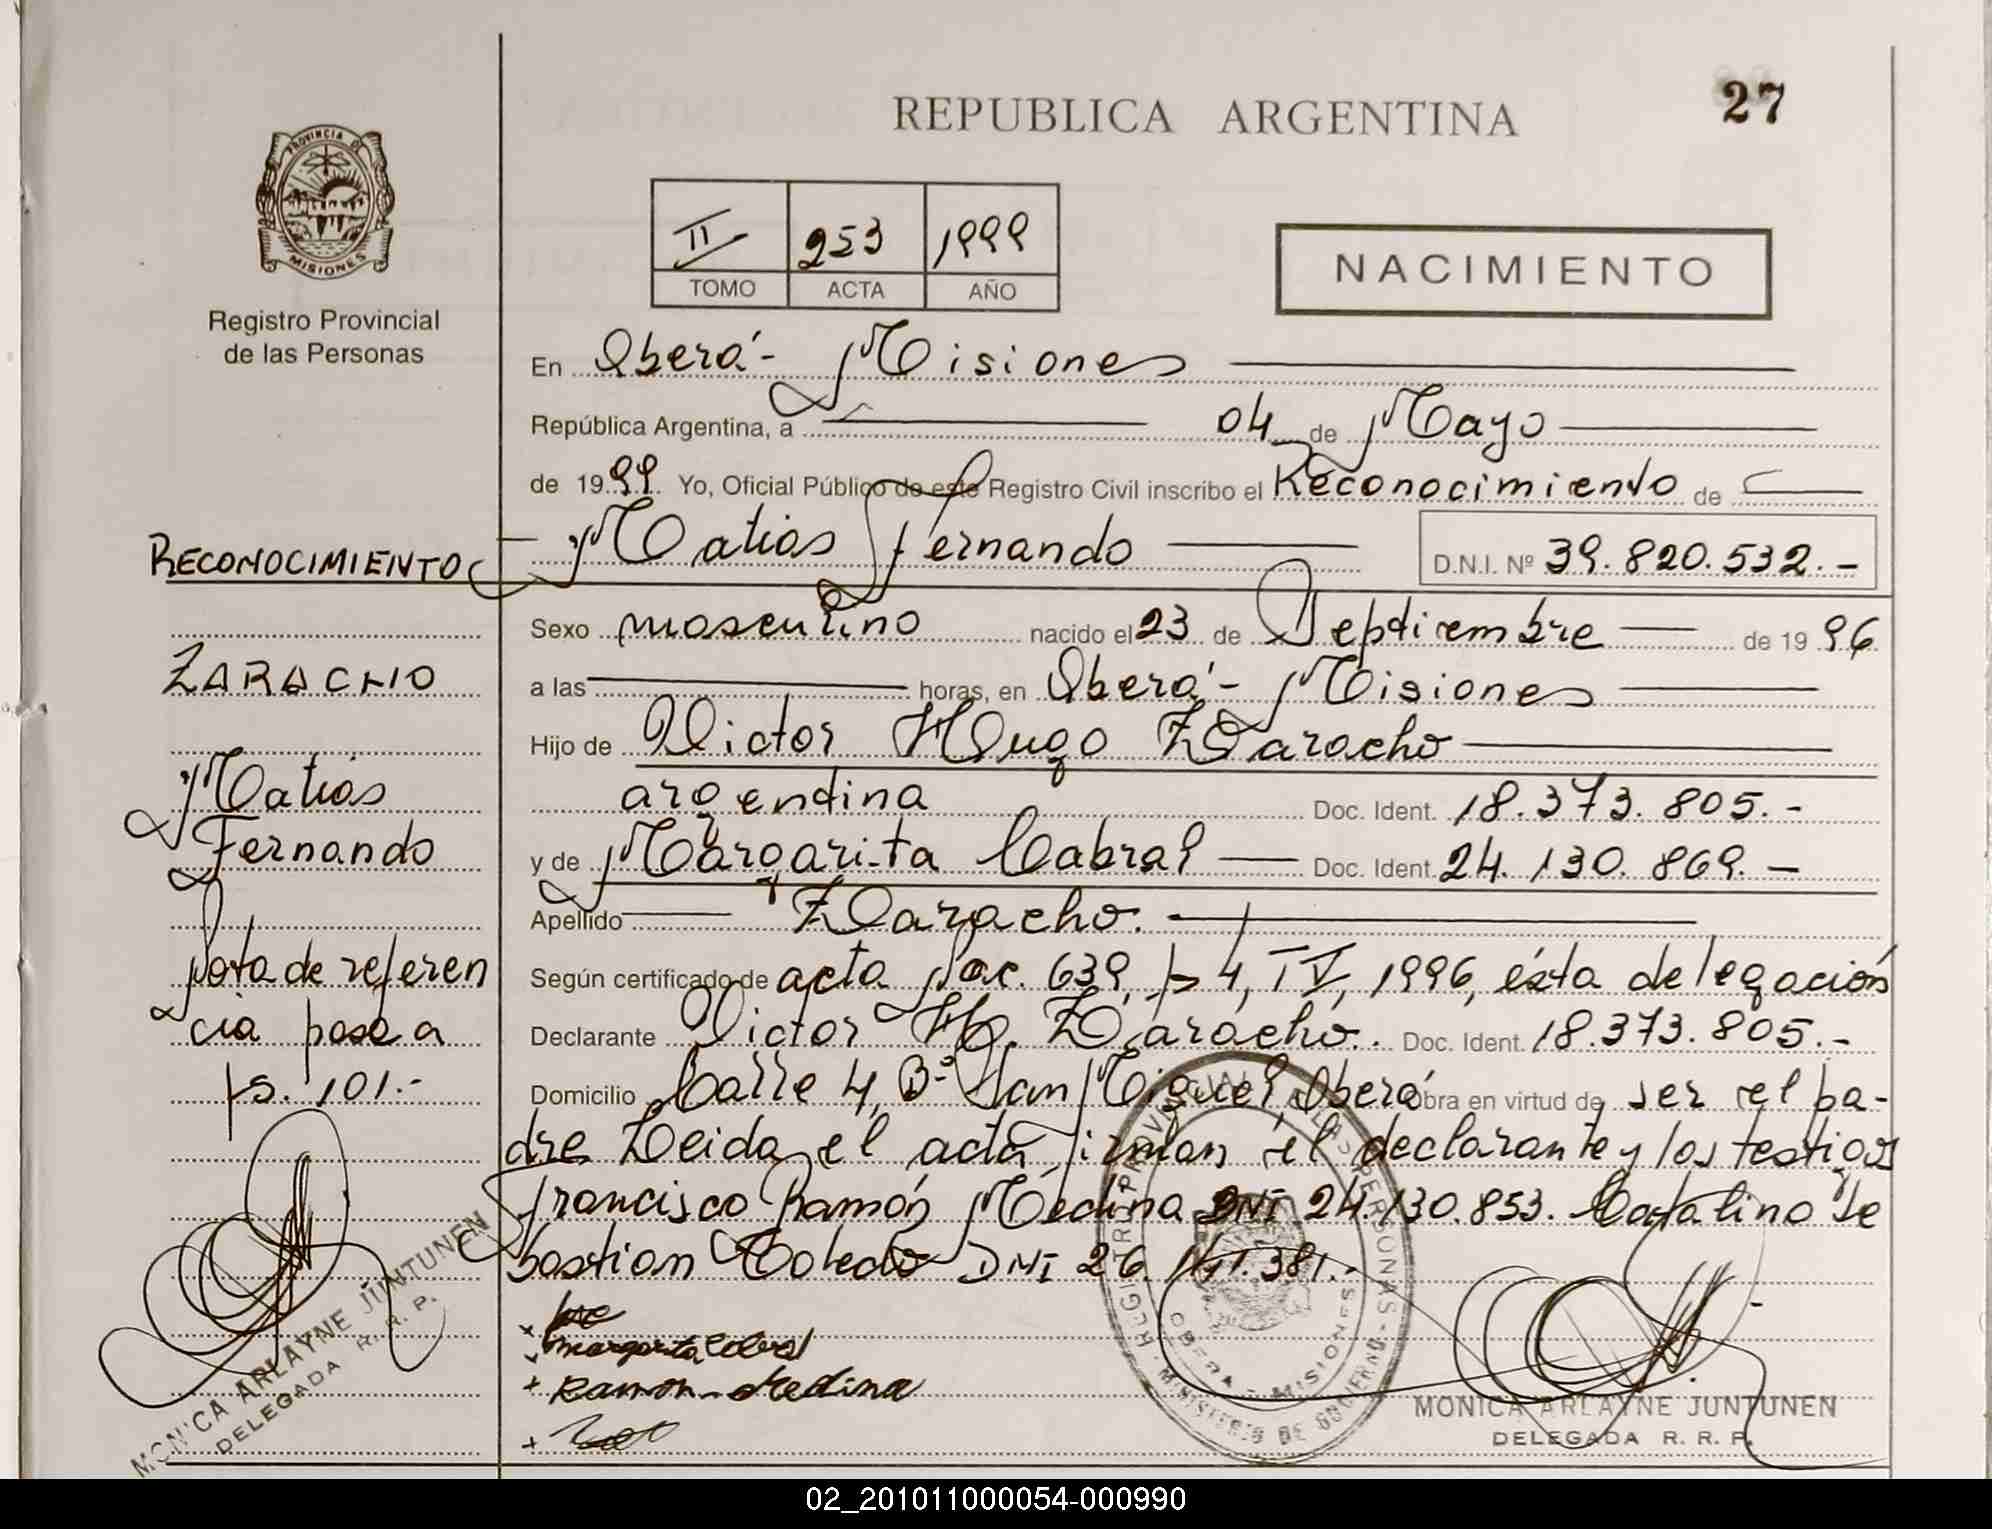 27
REPUBLICA ARGENTINA
PROVINCIA DE
MISIONES
Registro Provincial
de las Personas
II 253 1999
TOMO ACTA AÑO
NACIMIENTO
En Oberá - Misiones
República Argentina, a 04 de Mayo
de 1999 Yo, Oficial Público de este Registro Civil inscribo el Reconocimiento de
Matias Fernando D.N.I. Nº 39.820.532.-
Sexo masculino nacido el 23 de Septiembre de 1996
a las horas, en Oberá - Misiones
Hijo de Victor Hugo Zaracho
argentina Doc. Ident. 18.373.805.-
y de Margarita Cabral Doc. Ident. 24.130.869.-
Apellido Zaracho.
Según certificado de acta Nac. 639, T, IV, 1996, ésta delegación
Declarante Victor H. Zaracho. Doc. Ident. 18.373.805.-
Domicilio Calle 4, Bº San Miguel, Oberá Obra en virtud de ser el pa-
dre Leida el acta firman el declarante y los testigos
Francisco Ramón Medina DNI 24.130.853. Catalino Se
bastian Toledo DNI 26. 381.-
Margarita Cabral
Ramon Medina
REGISTRO PROVINCIAL DE LAS PERSONAS - MINISTERIO DE GOBIERNO
OBERA - MISIONES
MONICA ARLAYNE JUNTUNEN
DELEGADA R. R. P.
RECONOCIMIENTO
ZARACHO
Matias
Fernando
Nota de referen
cia pasa a
fs. 101.-
MONICA ARLAYNE JUNTUNEN
DELEGADA R. R. P.
02_201011000054-000990